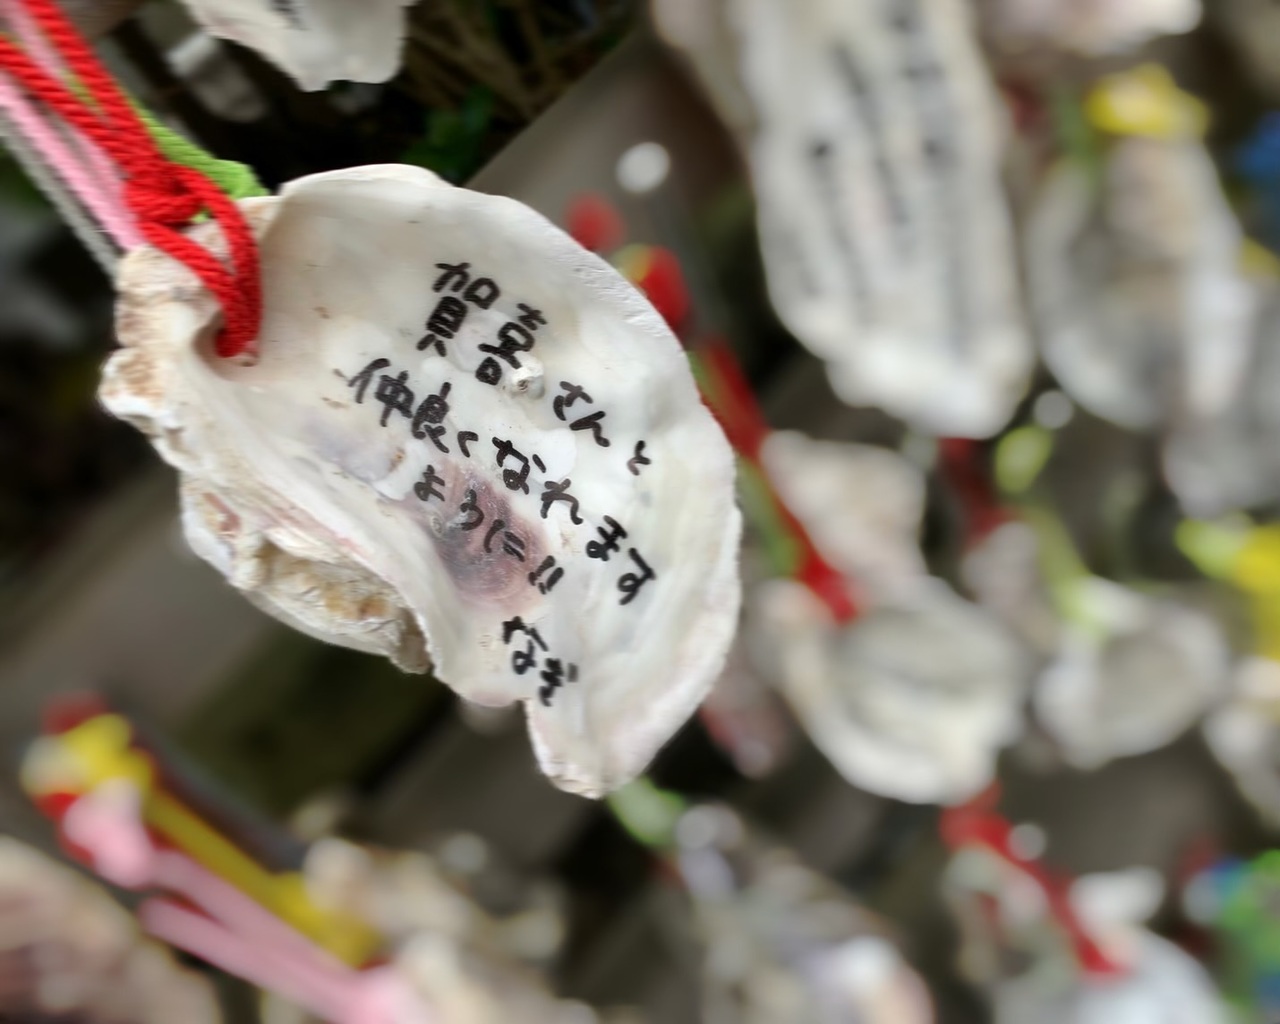 賀喜さんと
仲良くなれます
ように!!
なぎ